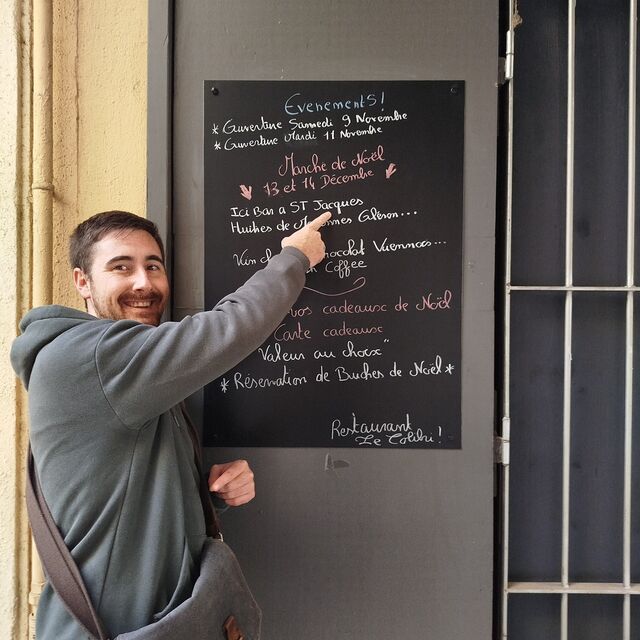 Evenements!
* Ouverture Samedi 9 Novembre
* Ouverture Mardi 11 Novembre
Marche de Noël
13 et 14 Décembre
Ici Bar a ST Jacques
Huitres de Oléron...
Vin Viennois...
Coffee
vos cadeaux de Noël
Carte cadeaux
Valeur au choix"
* Réservation de Buches de Noël *
Restaurant
Le Colibri!